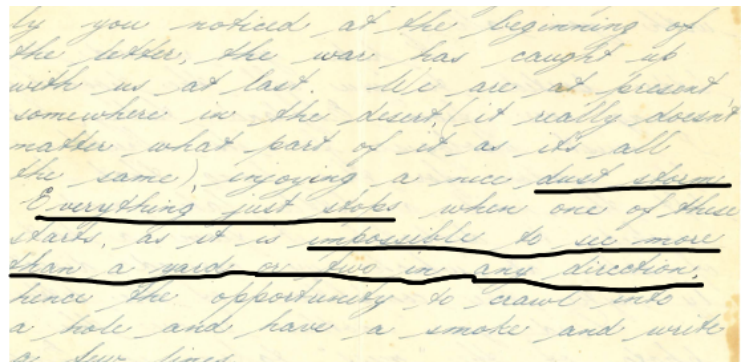 ly you noticed at the beginning of
the letter, the war has caught up
with us at last. We are at present
somewhere in the desert, (it really doesn't
matter what part of it as it's all
the same), enjoying a nice dust storm.
Everything just stops when one of these
starts, as it is impossible to see more
than a yard or two in any direction,
hence the opportunity to crawl into
a hole and have a smoke and write
a few lines